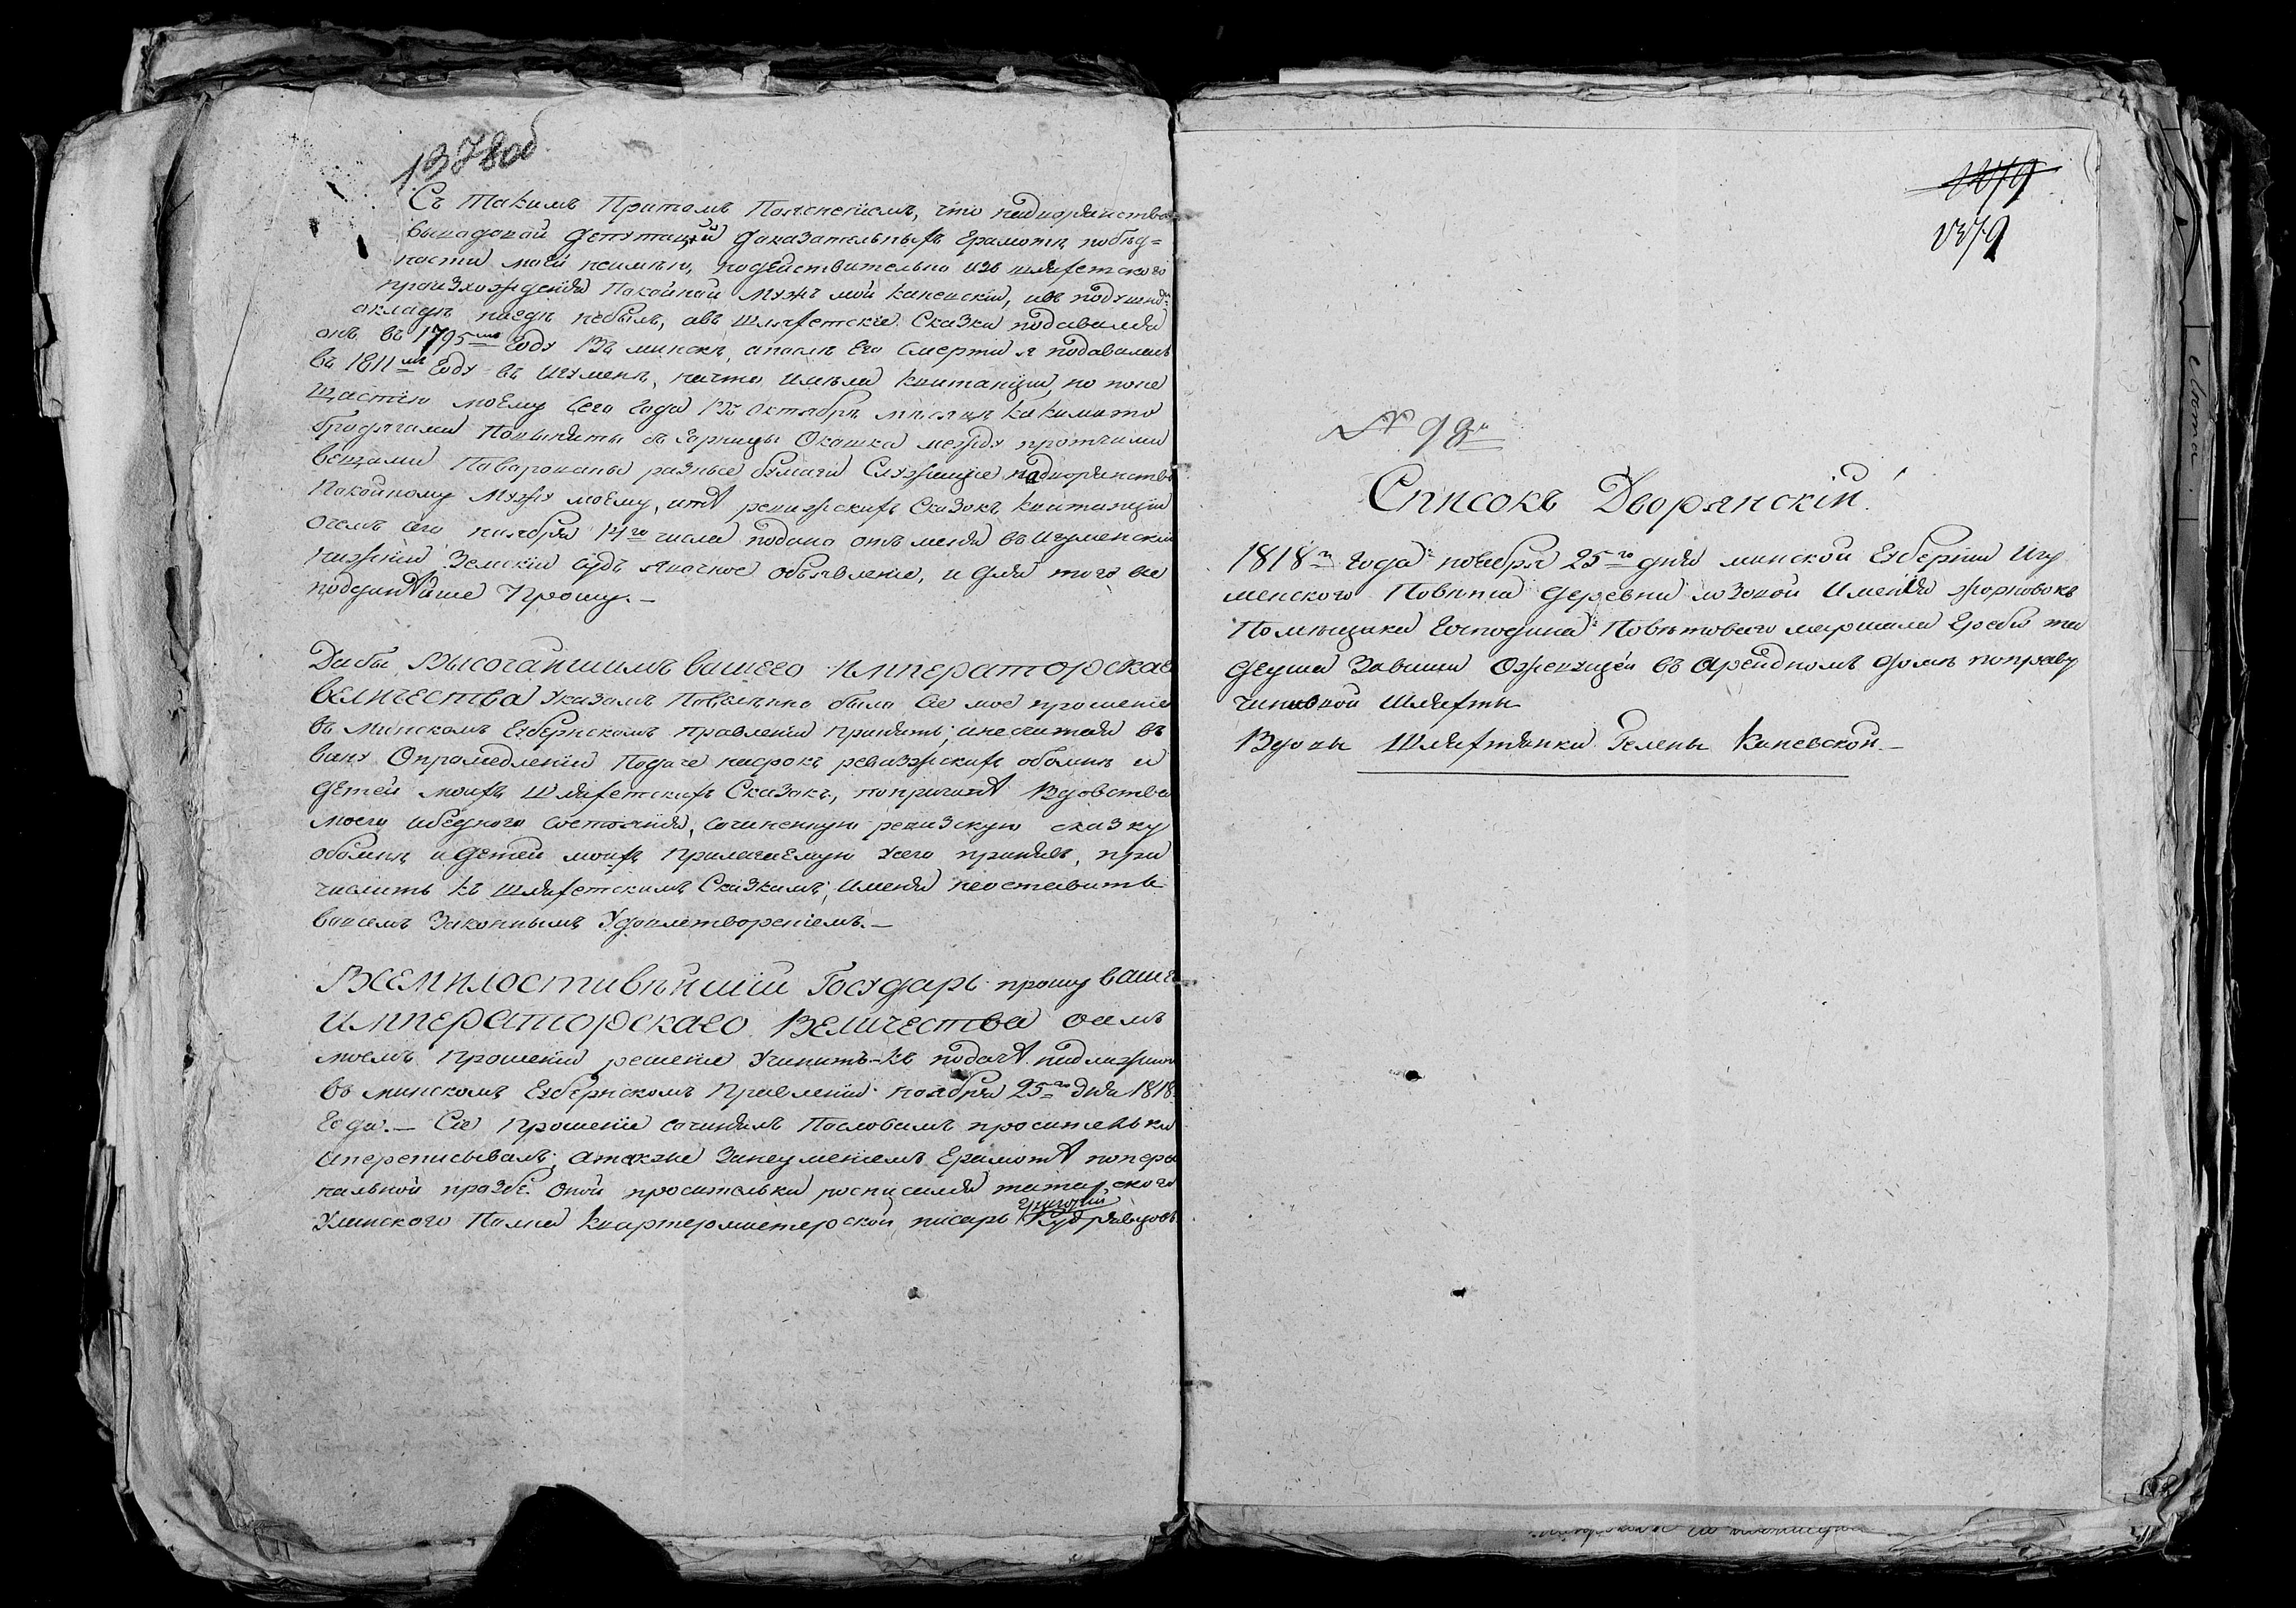 1378об
Съ такимъ притомъ поясненiемъ, что надворянство
выводовой депутацiй доказательныхъ грамотъ побѣд=
ности моей неимѣю, нодѣйствительно изъ шляхетского
произхожденiя покойной мужъ мой каневскiй, ивъ подушном
окладѣ нигдѣ небылъ, авъ шляхетскiе сказки подавался
онъ въ 1795мъ году въ минскѣ, апослѣ его смерти я подавалась
въ 1811мъ году въ игуменѣ, начто имѣла квитанцiи, но поне
щастiю моему сего года въ октябрѣ мѣсяцѣ какимито
бродягами повыняты въ горницы окошка между протчими
вещами поворованы разные бумаги служащiе надворянство
покойному мужу моему, итѣ ревижскихъ сказокъ квитанцiи
очемъ сего ноября 14го числа подано отъ меня въ игуменскiй
нижнiй земскiй судъ явочное объявленiе, и для того все
подданѣйше прошу.—
Дабы высочайшимъ вашего императорскаго
величества указомъ повелѣнно было сiе мое прошенiе
въ минскомъ губернскомъ правленiи принять; инесчитая въ
вину опромедленiи подаче насрокъ ревизжскихъ обомнѣ и
детей моихъ шляхетскихъ сказокъ, попричинѣ вдовства
моего ибедного состоянiя, сочиненную ревизскую сказку
обомнѣ идетей моихъ прилагаемую усего принявъ, при
числить къ шляхетскимъ сказкамъ; именя неоставить
вовсемъ законнымъ удовлетворенiемъ.—
Всемилостивѣйшiй государь прошу вашего
императорскаго величества осемъ
моемъ прошенiи решенiе учинить—къ подачѣ надлежитъ
въ минскомъ губернскомъ правленiи ноября 25го дня 1818
года.— Сiе прошенiе сочинялъ пословамъ просительки
ипереписывалъ; атакже занеуменiемъ грамотѣ поперсо
нальной прозбе оной просительки росписался татарского
уланского полка квартермистерской писарь григорiй Кудрявцовъ
1379
1379
№ 98й
Списокъ Дворянскiй
1818го года ноября 25го дня минской губернiи игу
менского повѣта деревни лозовой именiя жорновокъ
помѣщика господина повѣтового маршала графа та
деуша завиши                въ арендномъ домѣ поправу
чиншовой шляхты
Вдовы шляхтянки гелены каневской.—